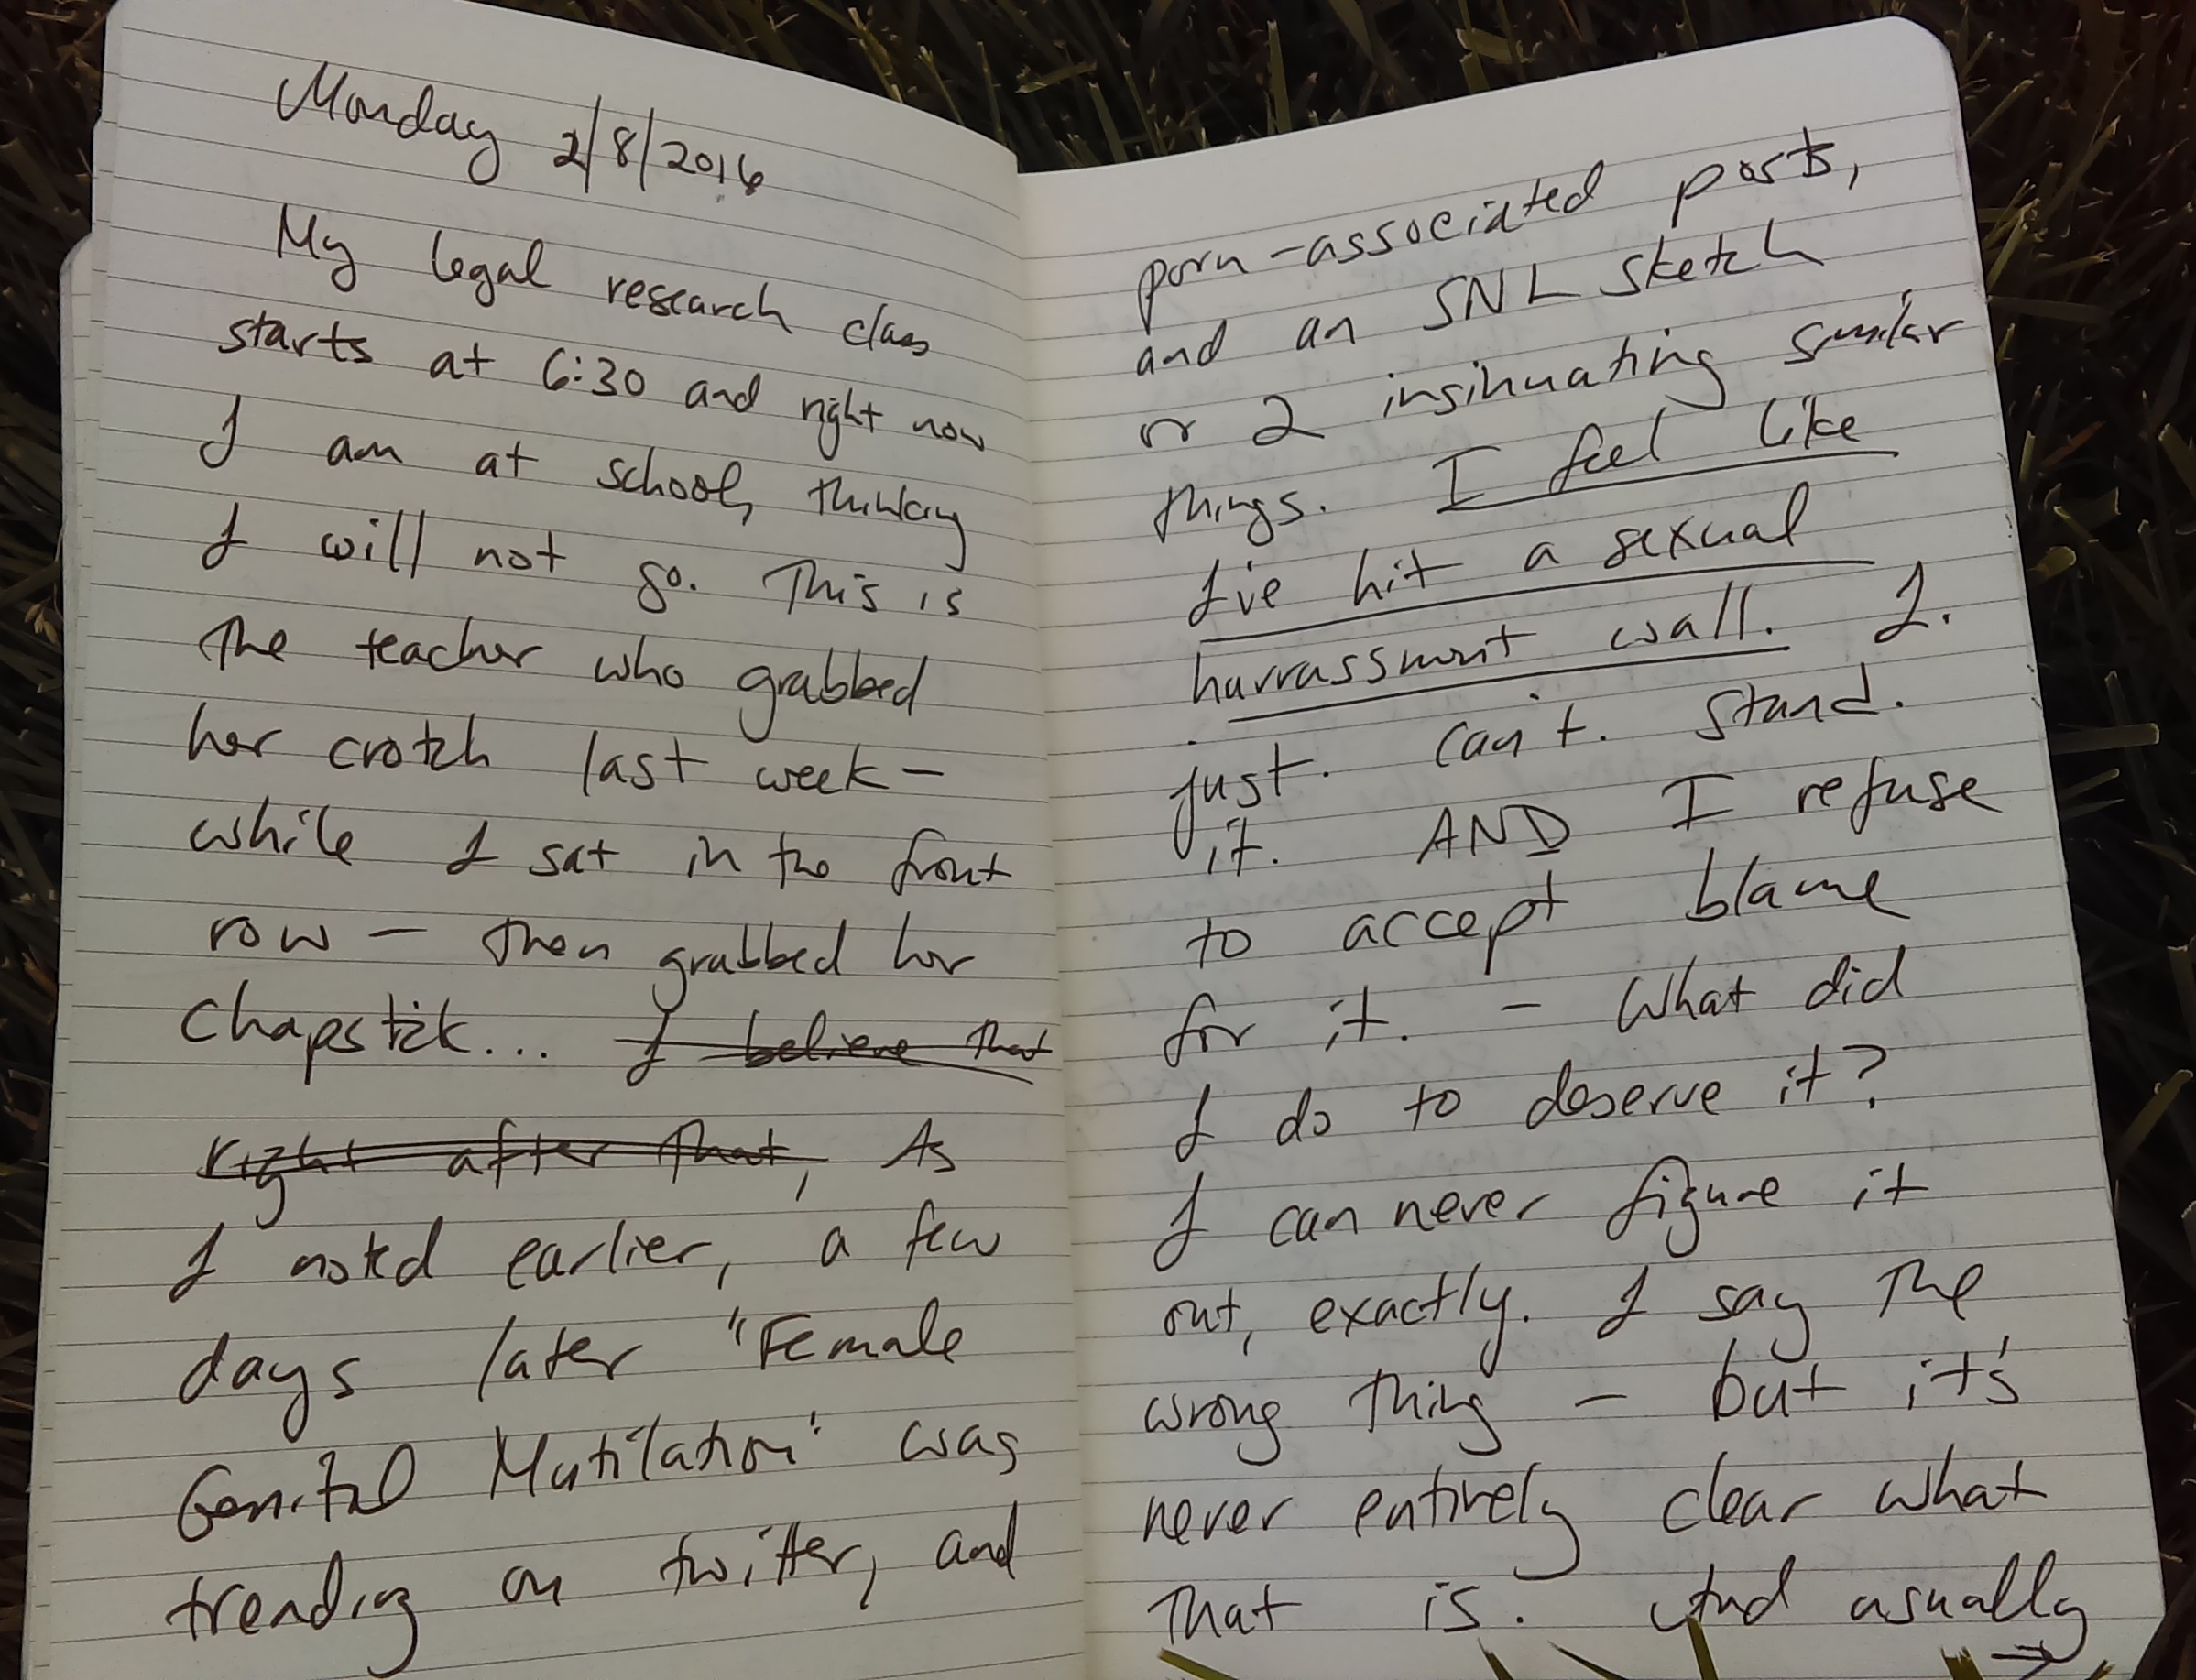 Monday 2/8/2016
My legal research class
starts at 6:30 and right now
I am at school, thinking
I will not go. This is
the teacher who grabbed
her crotch last week –
while I sat in the front
row – then grabbed her
chapstick... I believe that
right after that, As
I noted earlier, a few
days later "Female
Genital Mutilation" was
trending on twitter, and
porn-associated posts,
and an SNL sketch
or 2 insinuating similar
things. I feel like
I've hit a sexual
harrassment wall. I.
just. can't. stand.
it. AND I refuse
to accept blame
for it. – What did
I do to deserve it?
I can never figure it
out, exactly. I say the
wrong thing – but it's
never entirely clear what
that is. And usually
→